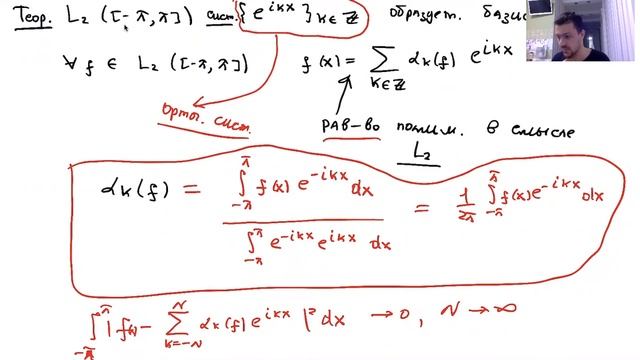 Теор. L₂ ([-π, π]) сист. {e^{ikx}}_{k∈ℤ} образует. базис
∀ f ∈ L₂ ([-π, π]) f(x) = ∑_{k∈ℤ} α_k(f) e^{ikx}
Ортог. сист. рав-во поним. в смысле
L₂
α_k(f) = ∫_{-π}^{π} f(x) e^{-ikx} dx / ∫_{-π}^{π} e^{-ikx} e^{ikx} dx = 1/2π ∫_{-π}^{π} f(x) e^{-ikx} dx
∫_{-π}^{π} | f(x) - ∑_{k=-N}^{N} α_k(f) e^{ikx} |² dx → 0, N → ∞